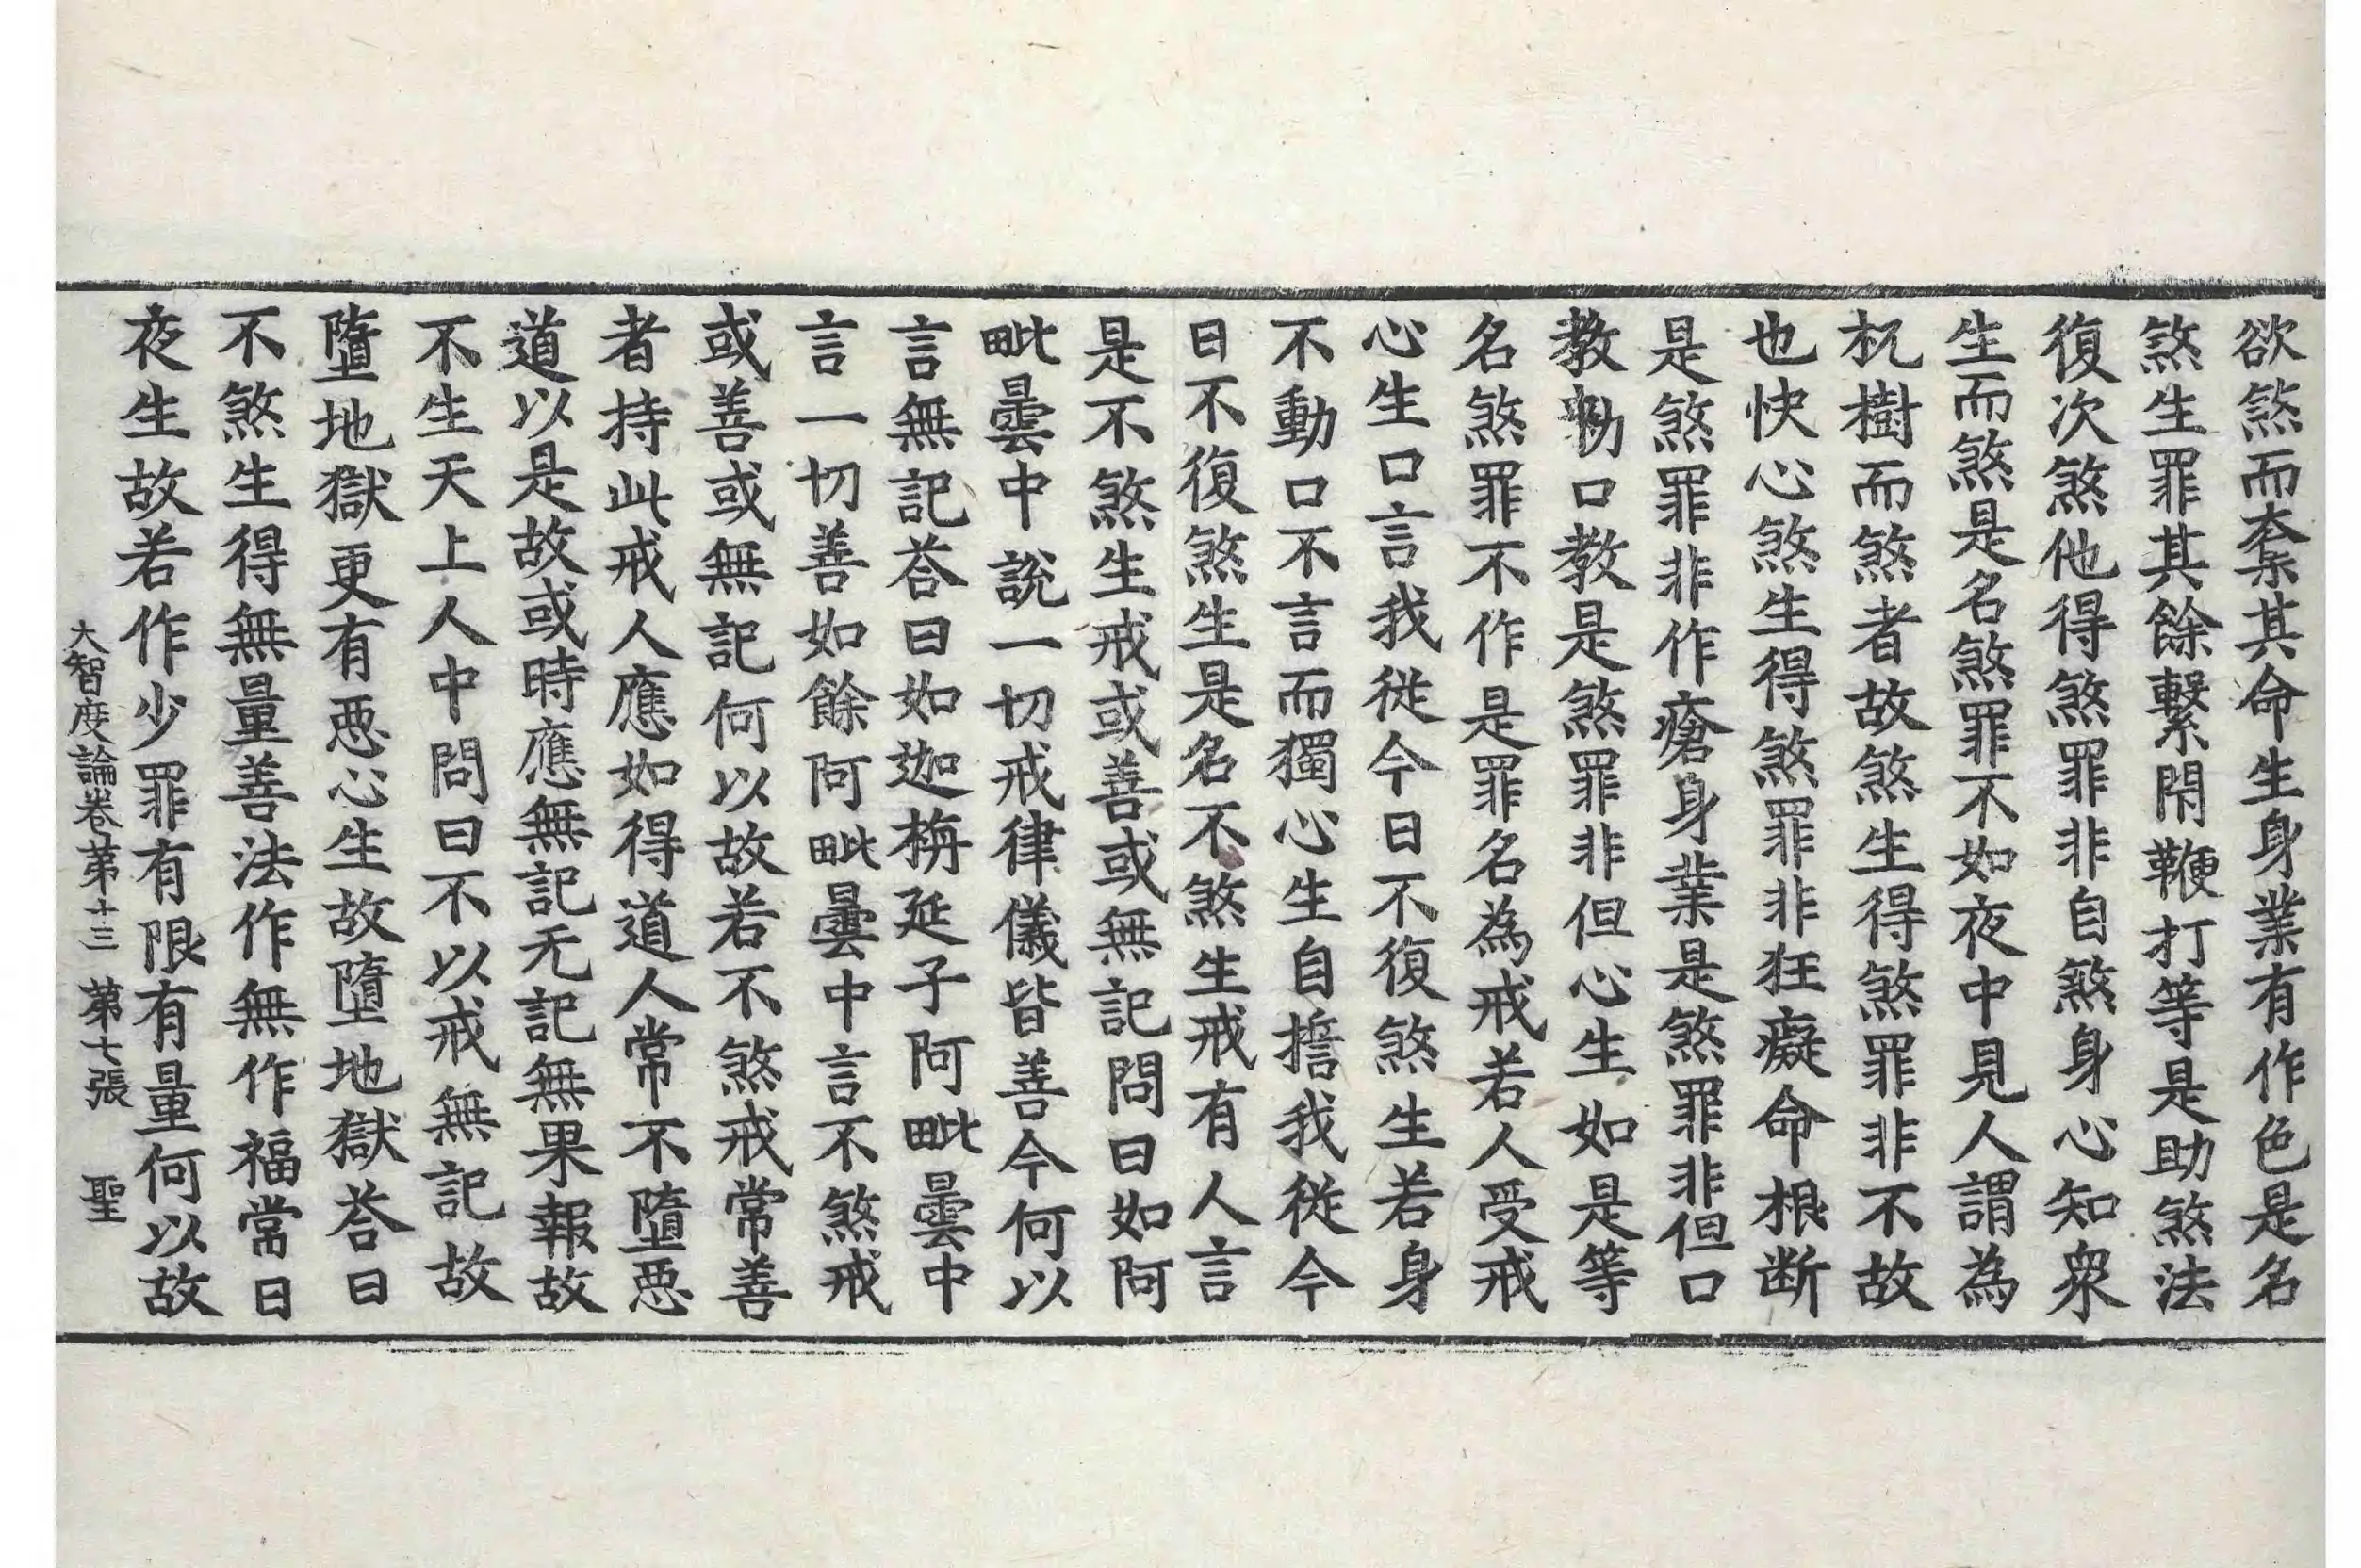 欲煞而奪其命生身業有作色是名
煞生罪其餘繫閇鞭打等是助煞法
復次煞他得煞罪非自煞身心知衆
生而煞是名煞罪不如夜中見人謂為
杌樹而煞者故煞生得煞罪非不故
也快心煞生得煞罪非狂癡命根断
是煞罪非作瘡身業是煞罪非但口
教勑口教是煞罪非但心生如是等
名煞罪不作是罪名為戒若人受戒
心生口言我從今日不復煞生若身
不動口不言而獨心生自擔我從今
日不復煞生是名不煞生戒有人言
是不煞生戒或善或無記問曰如阿
毗曇中說一切戒律儀皆善今何以
言無記荅曰如迦栴延子阿毗曇中
言一切善如餘阿毗曇中言不煞戒
或善或無記何以故若不煞戒常善
者持此戒人應如得道人常不墮惡
道以是故或時應無記无記無果報故
不生天上人中問曰不以戒無記故
墮地獄更有惡心生故墮地獄荅曰
不煞生得無量善法作無作福常日
夜生故若作少罪有限有量何以故
大智度論卷第十三 第七張 聖